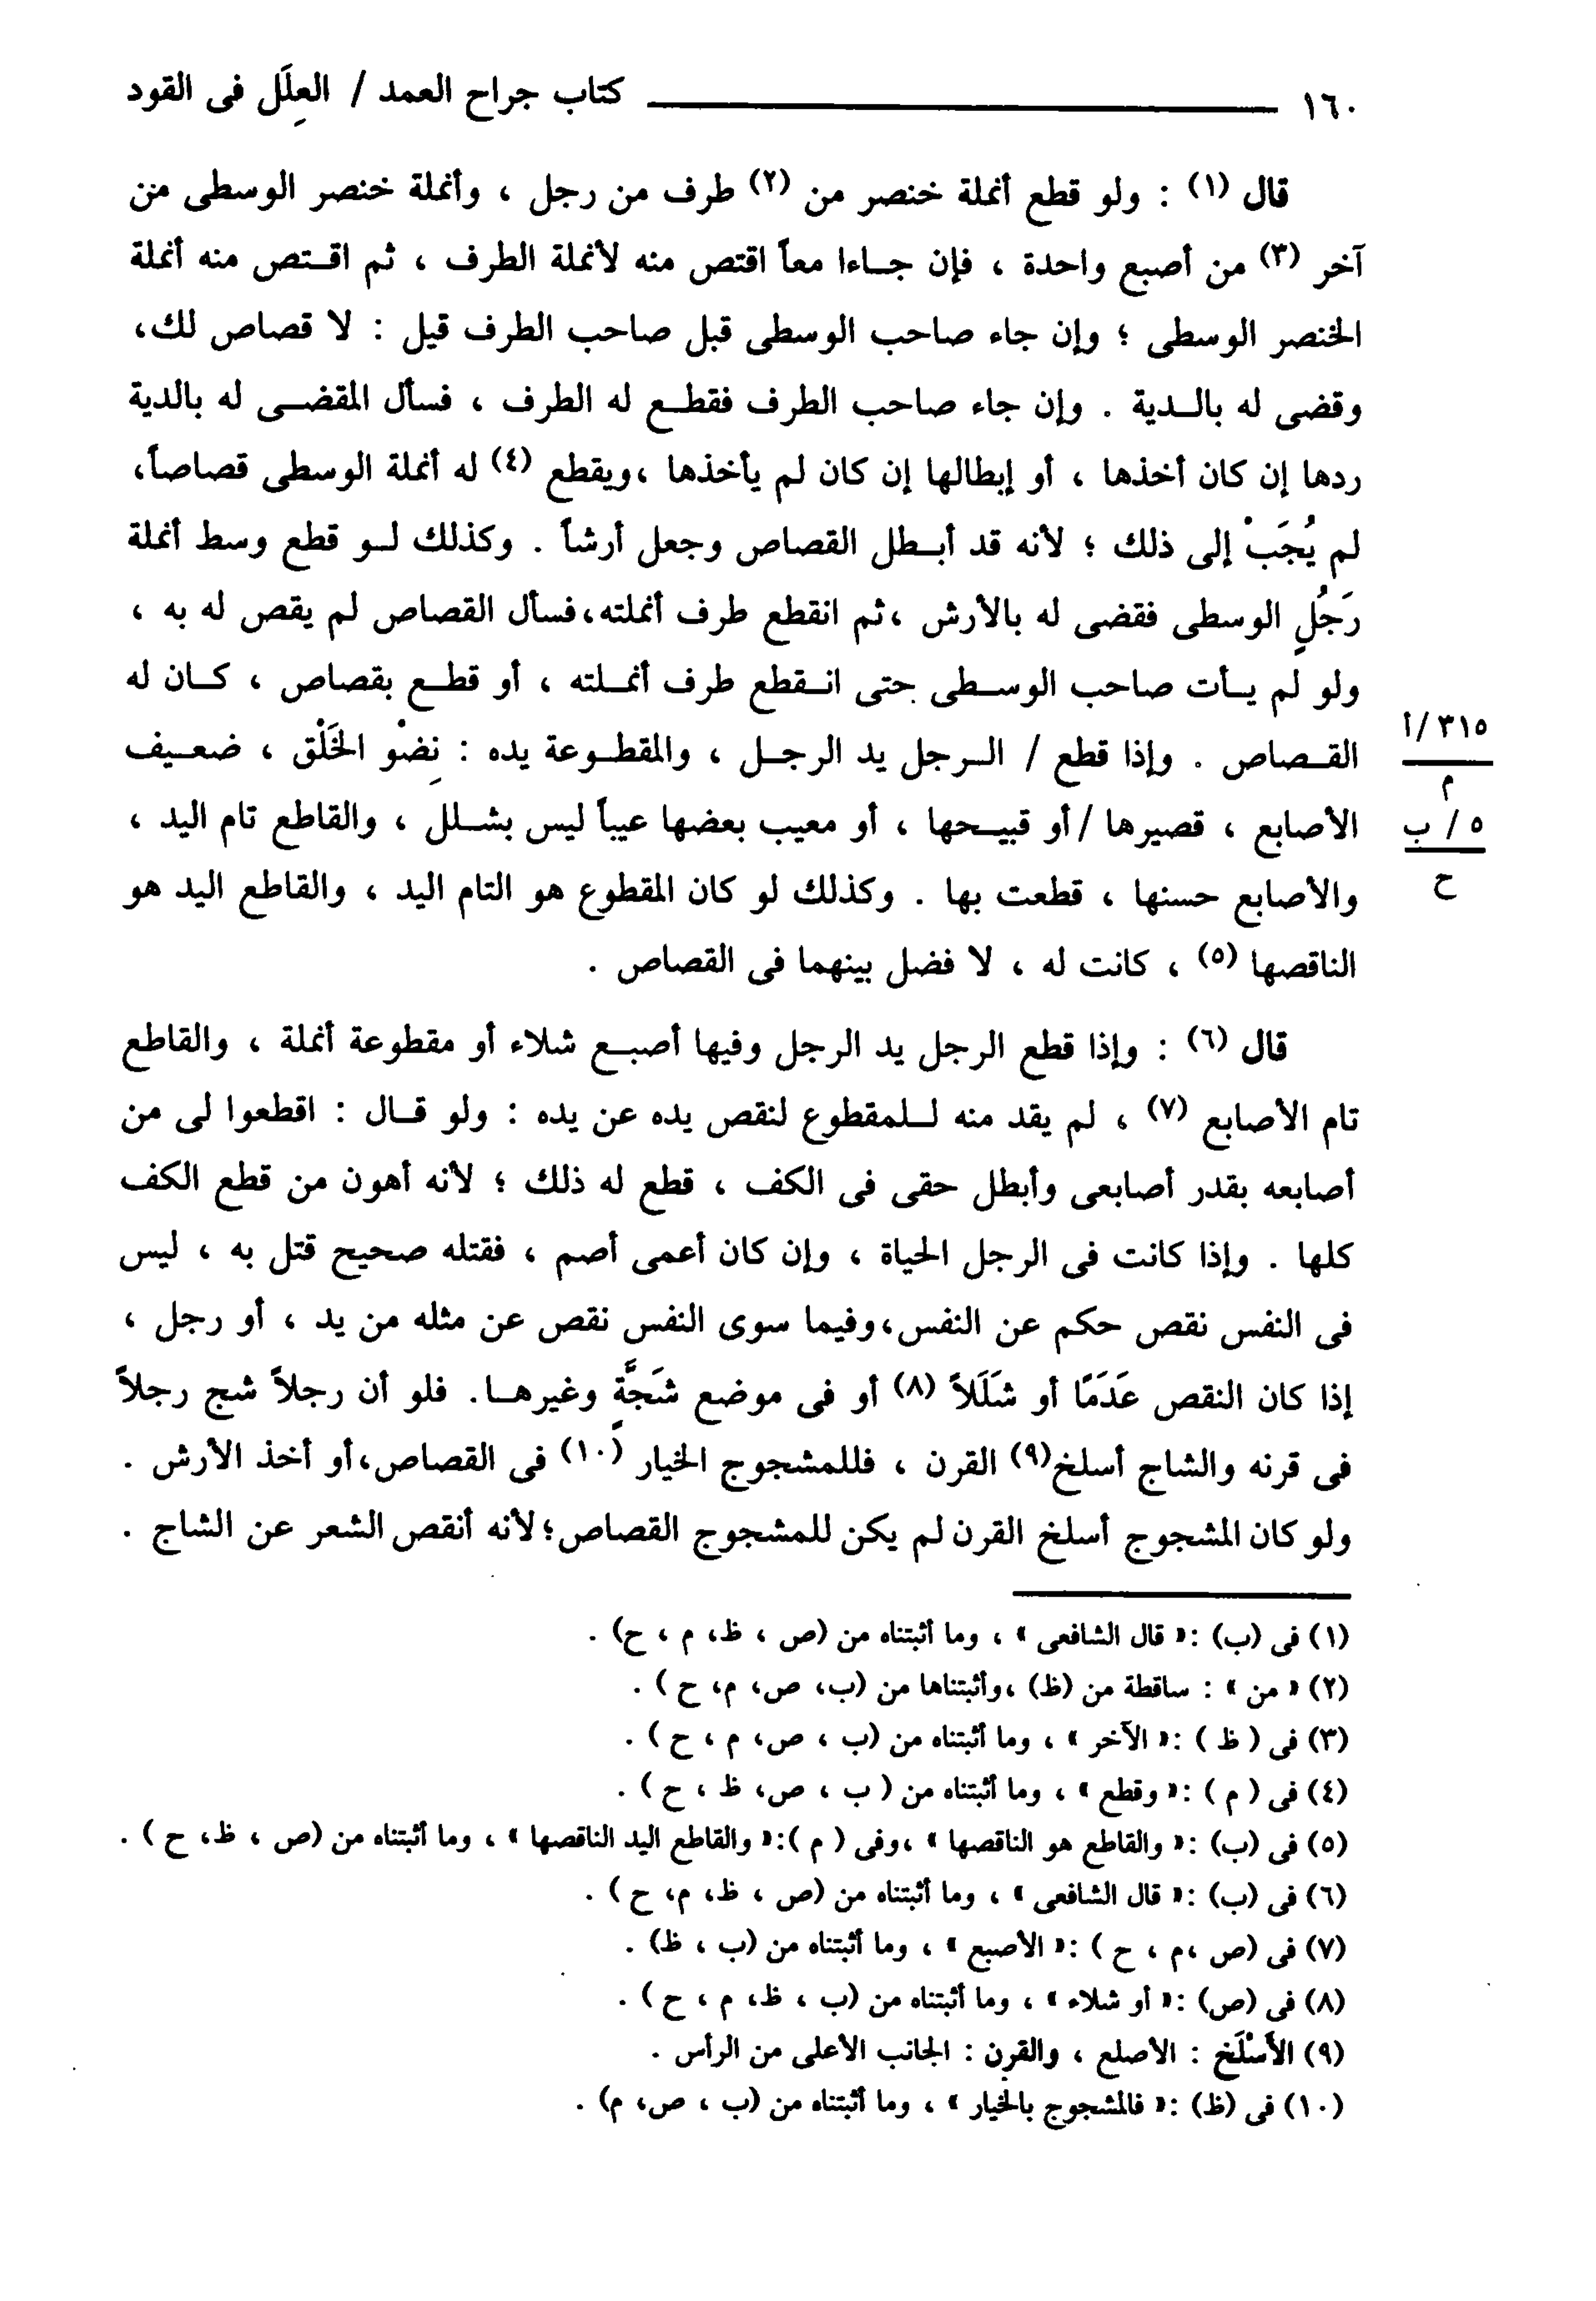 ١٦٠ كتاب جراح العمد / العِلَل فى القود
قال (١) : ولو قطع أنملة خنصر من (٢) طرف من رجل ، وأنملة خنصر الوسطى من
آخر (٣) من أصبع واحدة ، فإن جاءا معاً اقتص منه لأنملة الطرف ، ثم اقتص منه أنملة
الخنصر الوسطى ؛ وإن جاء صاحب الوسطى قبل صاحب الطرف قيل : لا قصاص لك،
وقضى له بالدية . وإن جاء صاحب الطرف فقطع له الطرف ، فسأل المقضى له بالدية
ردها إن كان أخذها ، أو إبطالها إن كان لم يأخذها ،ويقطع (٤) له أنملة الوسطى قصاصاً،
لم يُجَبْ إلى ذلك ؛ لأنه قد أبطل القصاص وجعل أرشاً . وكذلك لو قطع وسط أنملة
رَجُلٍ الوسطى فقضى له بالأرش ،ثم انقطع طرف أنملته،فسأل القصاص لم يقص له به ،
ولو لم يأت صاحب الوسطى حتى انقطع طرف أنملته ، أو قطع بقصاص ، كان له
القصاص . وإذا قطع / الرجل يد الرجل ، والمقطوعة يده : نِضْو الخَلْق ، ضعيف
٣١٥/ أ
م
الأصابع ، قصيرها / أو قبيحها ، أو معيب بعضها عيباً ليس بشلل ، والقاطع تام اليد ،
٥ / ب
ح
والأصابع حسنها ، قطعت بها . وكذلك لو كان المقطوع هو التام اليد ، والقاطع اليد هو
الناقصها (٥) ، كانت له ، لا فضل بينهما فى القصاص .
قال (٦) : وإذا قطع الرجل يد الرجل وفيها أصبع شلاء أو مقطوعة أنملة ، والقاطع
تام الأصابع (٧) ، لم يقد منه للمقطوع لنقص يده عن يده : ولو قال : اقطعوا لى من
أصابعه بقدر أصابعى وأبطل حقى فى الكف ، قطع له ذلك ؛ لأنه أهون من قطع الكف
كلها . وإذا كانت فى الرجل الحياة ، وإن كان أعمى أصم ، فقتله صحيح قتل به ، ليس
فى النفس نقص حكم عن النفس،وفيما سوى النفس نقص عن مثله من يد ، أو رجل ،
إذا كان النقص عَدَمًا أو شَلَلاً (٨) أو فى موضع شَجَّةٍ وغيرها. فلو أن رجلاً شج رجلاً
فى قرنه والشاج أسلخ(٩) القرن ، فللمشجوج الخيار (١٠) فى القصاص،أو أخذ الأرش .
ولو كان المشجوج أسلخ القرن لم يكن للمشجوج القصاص؛لأنه أنقص الشعر عن الشاج .
(١) فى (ب) :« قال الشافعى » ، وما أثبتناه من (ص ، ظ، م ، ح) .
(٢) « من » : ساقطة من (ظ) ،وأثبتناها من (ب، ص، م، ح ) .
(٣) فى ( ظ ) :« الآخر » ، وما أثبتناه من (ب ، ص، م ، ح ) .
(٤) فى ( م ) :« وقطع » ، وما أثبتناه من ( ب ، ص، ظ ، ح ) .
(٥) فى (ب) :« والقاطع هو الناقصها » ،وفى ( م ):« والقاطع اليد الناقصها » ، وما أثبتناه من (ص ، ظ، ح ) .
(٦) فى (ب) :« قال الشافعى » ، وما أثبتناه من (ص ، ظ، م، ح ) .
(٧) فى (ص ،م ، ح ) :« الأصبع » ، وما أثبتناه من (ب ، ظ) .
(٨) فى (ص) :« أو شلاء » ، وما أثبتناه من (ب ، ظ، م ، ح ) .
(٩) الأَسْلَخ : الأصلع ، والقرن : الجانب الأعلى من الرأس .
(١٠) فى (ظ) :« فالمشجوج بالخيار » ، وما أثبتناه من (ب ، ص، م) .